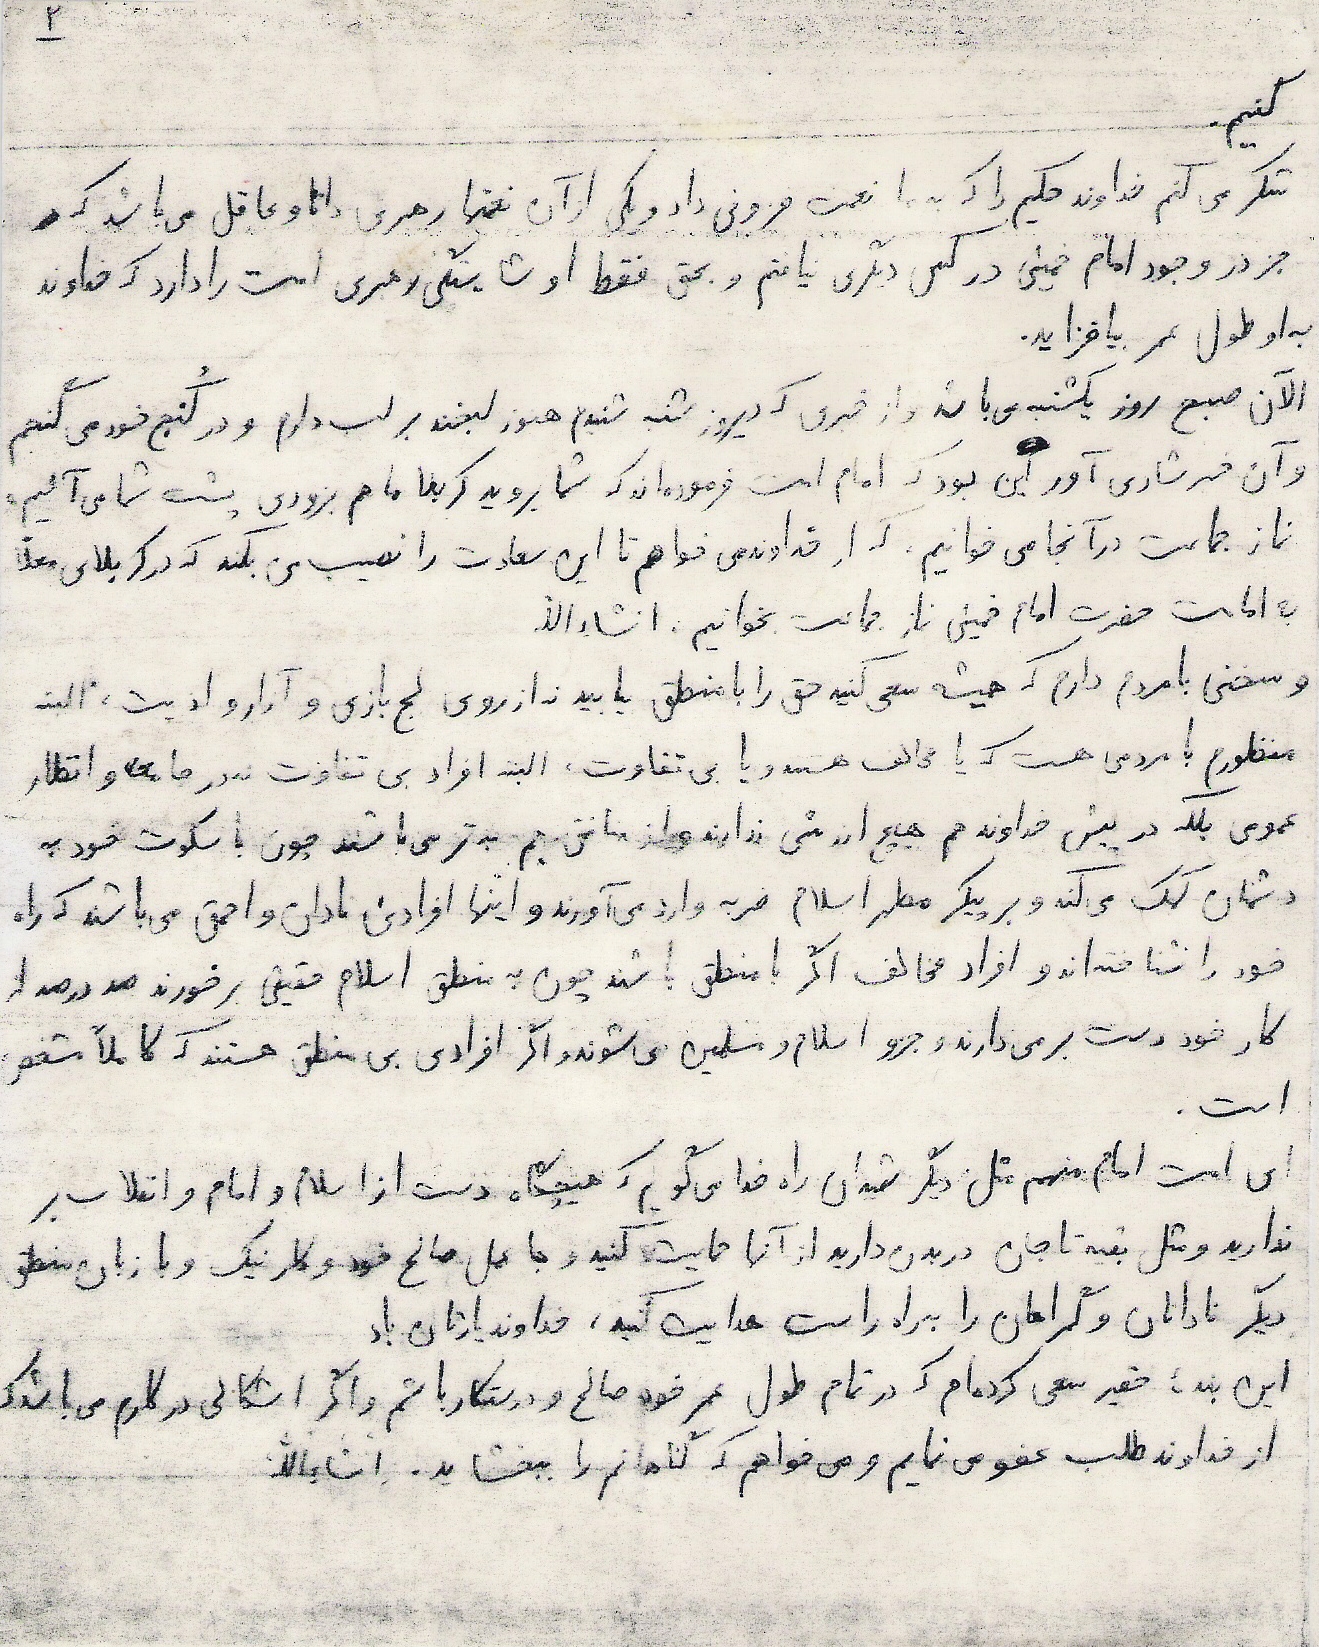 ۲
کنیم.
تشکر می‌کنم خداوند حکیم را که به ما نعمت فزونی داد و یکی از آن نعمتها رهبری دانا و عاقل می‌باشد که
جز در وجود امام خمینی در کس دیگری نیافتم و بحق فقط او شایستگی رهبری امت را دارد که خداوند
به او طول عمر بیافزاید.
الآن صبح روز یکشنبه می‌باشد و از خبری که دیروز شنبه شنیدم هنوز لبخند بر لب دارم و در گنج خود می گنجم
و آن خبر شادی آور این بود که امام امت فرموده‌اند که شما بروید کربلا ما هم بزودی پشت شما می‌آئیم و
نماز جماعت در آنجا می خوانیم. که از خداوند می خواهم تا این سعادت را نصیب من بکند که در کربلای معلّا
به امامت حضرت امام خمینی نماز جماعت بخوانیم. انشاءالله
و سخنی با مردم دارم که همیشه سعی کنید حق را با منطق بیابید نه از روی لج بازی و آزار و اذیت، البته
منظورم با مردمی هست که یا مخالف هستند و یا بی تفاوت، البته افراد بی تفاوت نه در جامعه و انظار
عمومی بلکه در پیش خداوند هم هیچ ارزشی ندارند و از منافق هم بدتر می‌باشند چون با سکوت خود به
دشمنان کمک می‌کند و بر پیکر مطهر اسلام ضربه وارد می‌آورند و اینها افرادی نادان و احمق می‌باشند که راه
خود را نشناخته‌اند و افراد مخالف اگر با منطق باشند چون به منطق اسلام حقیقی برخورند صد در صد از
کار خود دست برمی‌دارند و جزو اسلام و مسلمین می‌شوند و اگر افرادی بی منطق هستند که کاملاً مشخص
است.
ای امت امام منهم مثل دیگر شهیدان راه خدا می‌گویم که هیچگاه دست از اسلام و امام و انقلاب بر
ندارید و مثل بقیه تا جان در بدن دارید از آنها حمایت کنید و با عمل صالح خود و کار نیک و با زبان منطق
دیگر نادانان و گمراهان را براه راست هدایت کنید، خداوند یارتان باد
این بنده حقیر سعی کرده‌ام که در تمام طول عمر خود صالح و درستکار باشم و اگر اشکالی در کارم می‌باشد که
از خداوند طلب عفو می نمایم و می خواهم که گناهانم را ببخشاید. انشاءالله